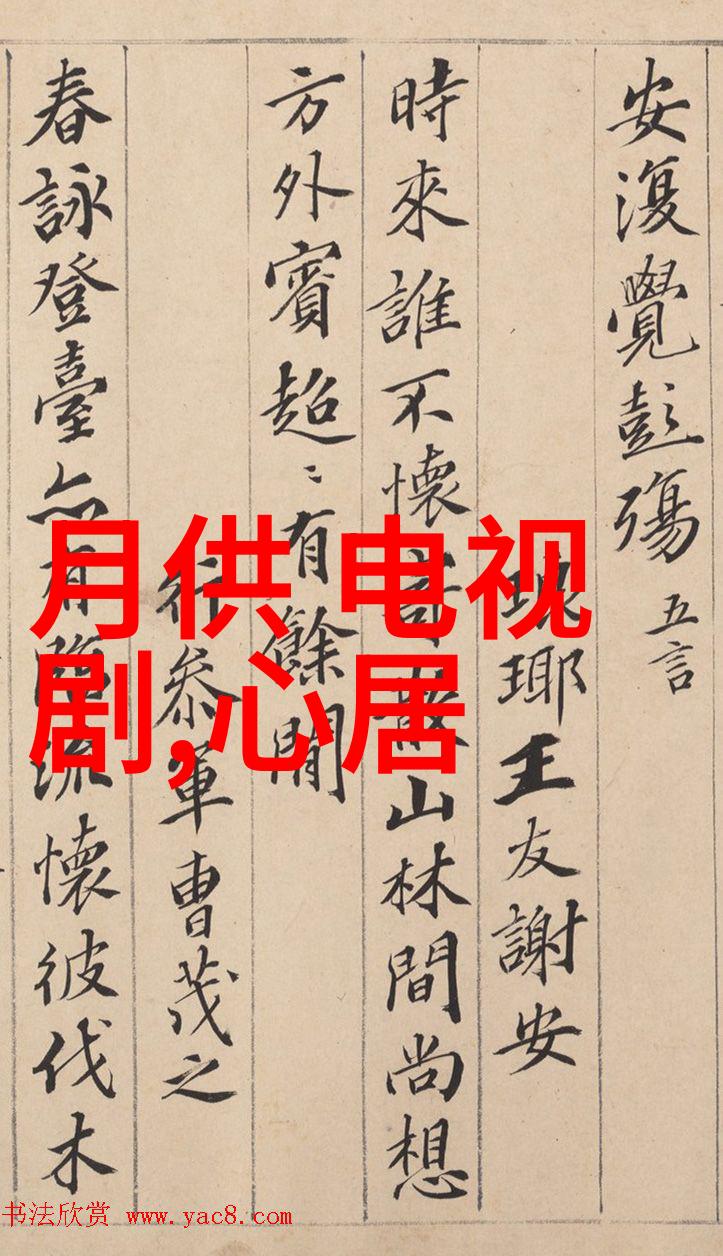 安復覺彭殤 五言
瑘王友謝安
時來誰不懷寄散山林間尚想
方外賓超〻有餘閒
行参軍曹茂之
春詠登臺亦有臨流懷彼伐木
月供 电视
剧,心居
书法欣赏 www.yac8.com